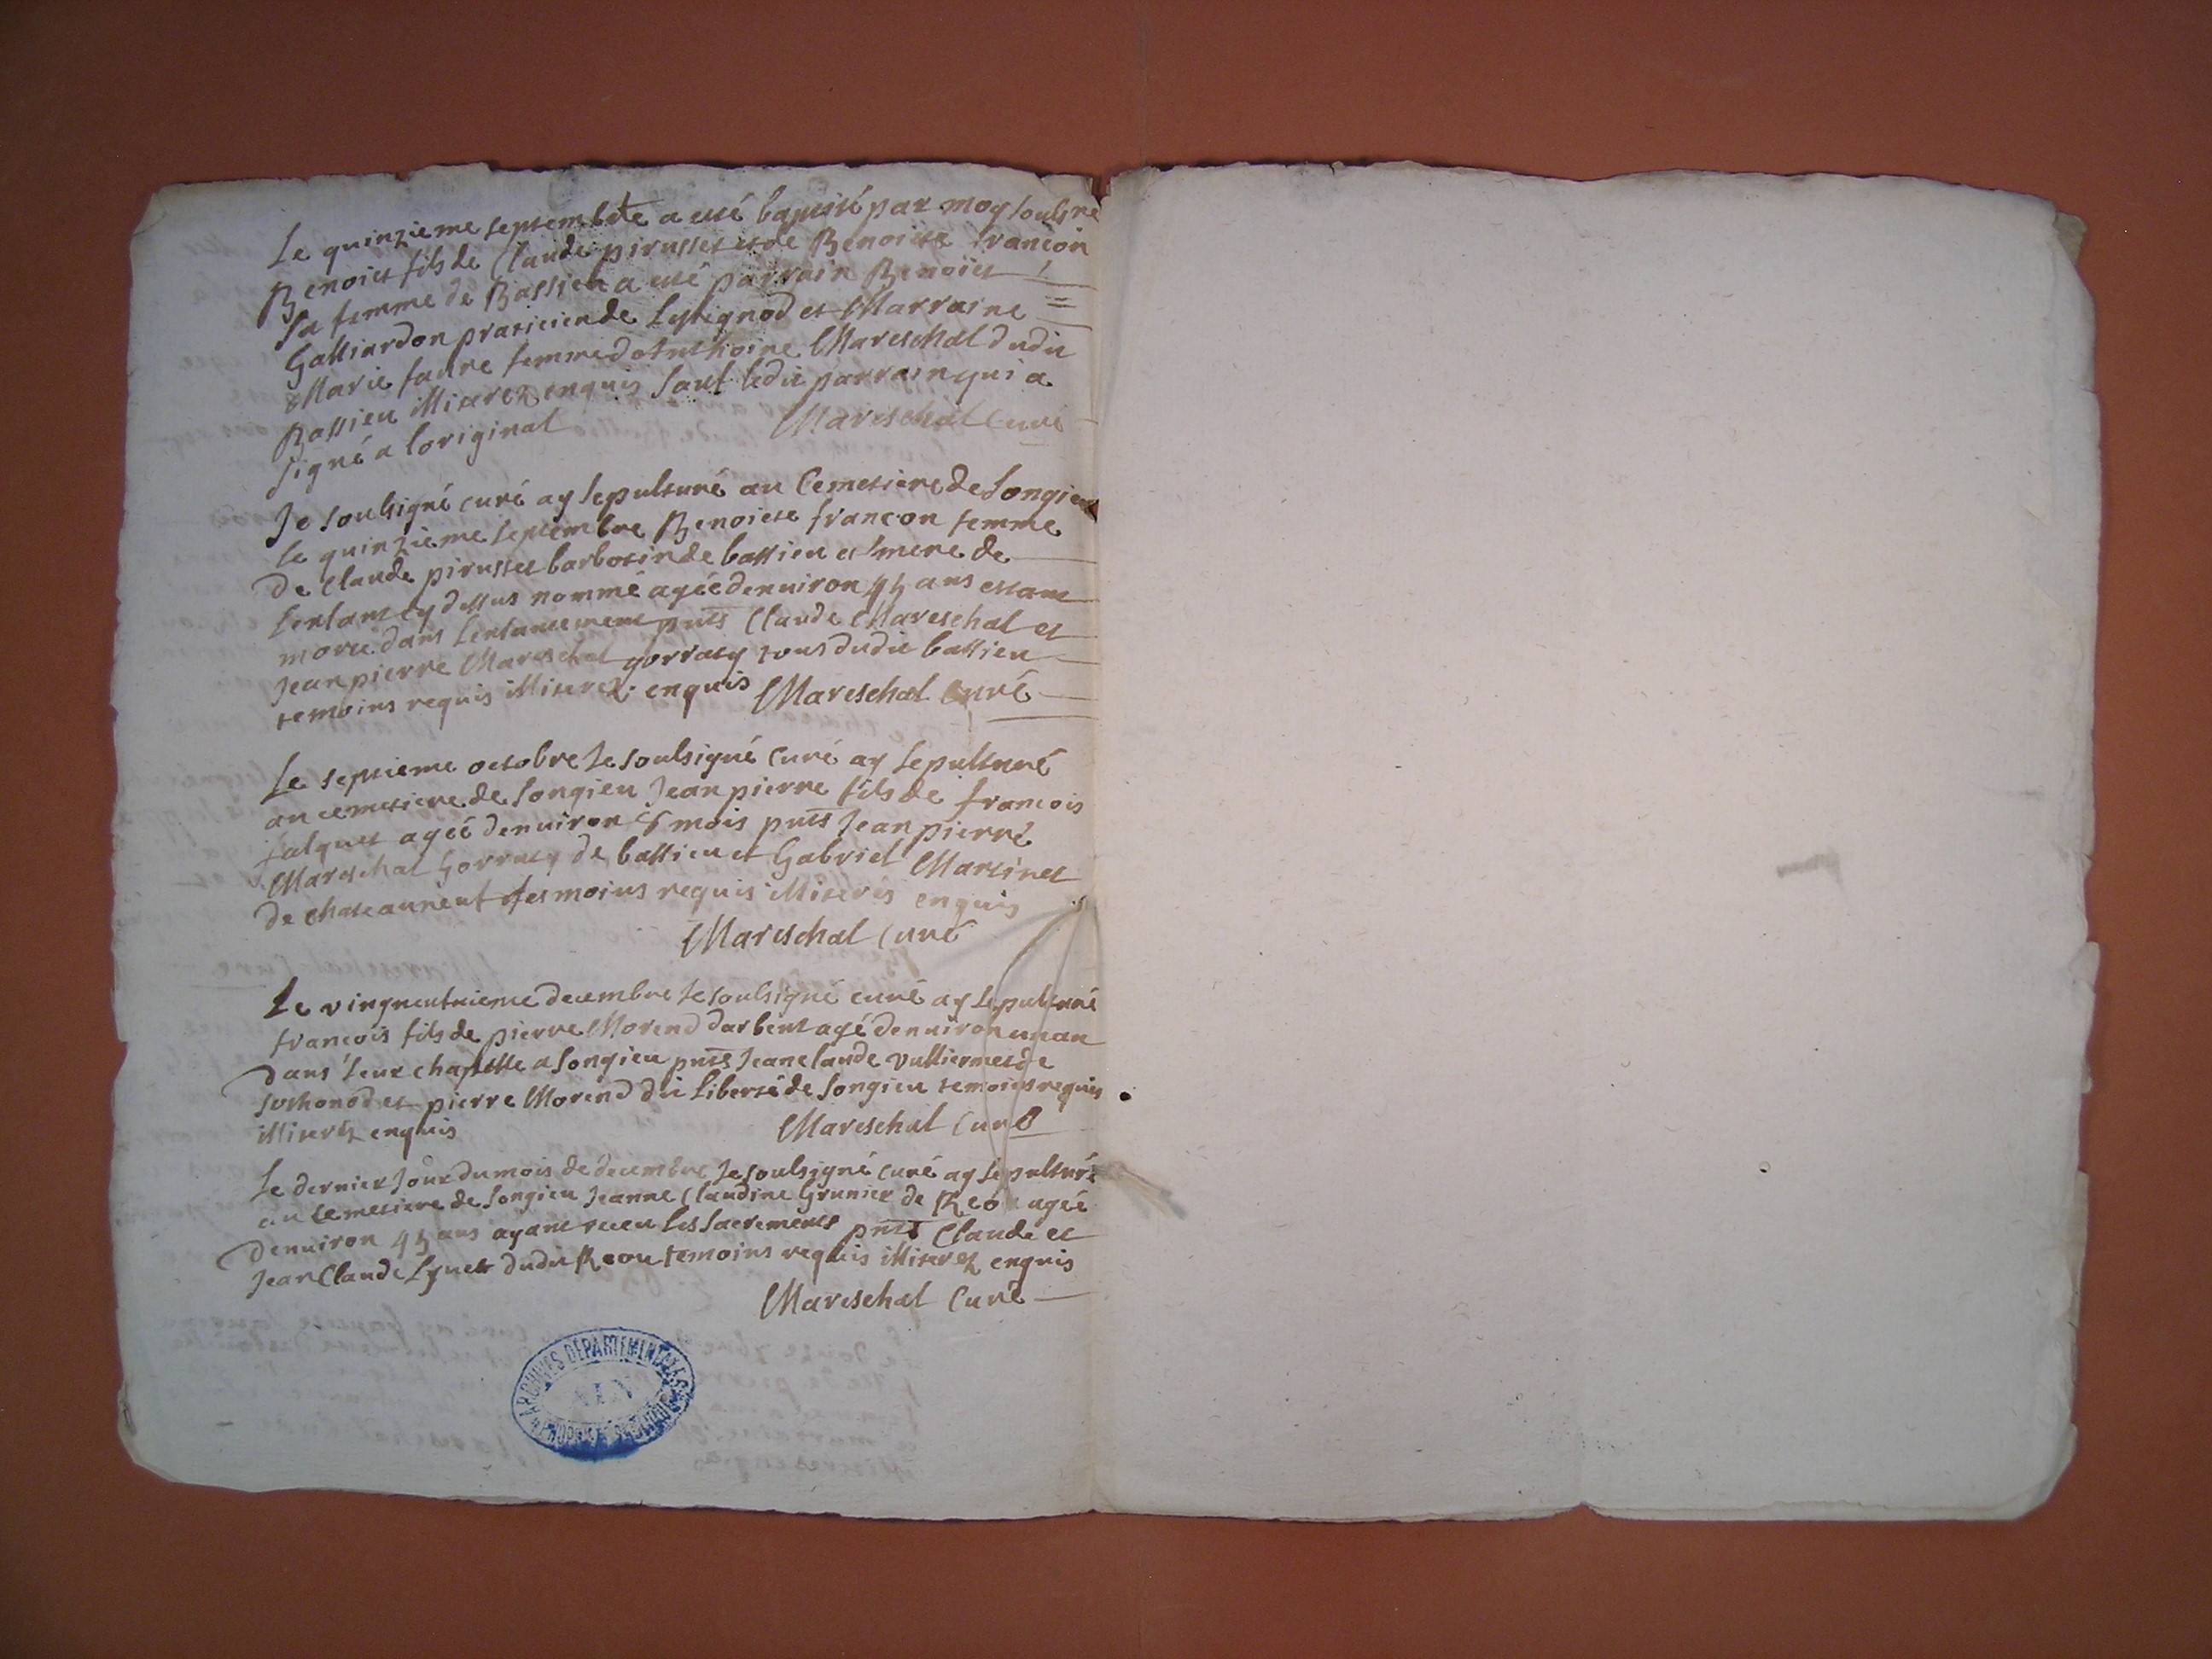 Le quinzieme septembre a esté baptisé par moy soubsné
Benoict fils de Claude pirusset et de Benoiste francon
sa femme de Bassieu a esté parrain Benoict
Galliardon praticien de Lytignod et Marraine
Marie faure femme d'Anthoine Mareschal dudit
Bassieu illiterez enquis sauf ledit parrain qui a
signé a loriginal Mareschal Curé
Je soubsigné curé ay sepulturé au Cemetiere de Songieu
le quinzieme septembre Benoiste francon femme
de Claude pirusset barbotin de bassieu et mere de
lenfant cy dessus nommé agée denuiron 45 ans estant
morte dans lenfantement pnts Claude Mareschal et
Jean pierre Mareschal gorraty tous dudit bassieu
temoins requis illiterez enquis Mareschal Curé
Le septieme octobre Je soubsigné Curé ay sepulturé
au cemetiere de songieu Jean pierre fils de francois
falquet agée denuiron 6 mois pnts Jean pierre
Mareschal Gorraty de bassieu et Gabriel Martinet
de chateauneuf tesmoins requis illiterés enquis
Mareschal Curé
Le vingneufuieme decembre Je soubsigné curé ay sepulturé
francois fils de pierre Morend darbent agé denuiron un an
dans leur chapelle a songieu pnts Jean claude vulliermet de
Suthonod et pierre Morend dit liberté de songieu temoins requis
illiterés enquis Mareschal Curé
Le dernier Jour du mois de decembre Je soubsigné curé ay sepulturé
au cemetiere de songieu Jeanne Claudine Grunier de agée
denuiron 45 ans ayant receu les sacrements pnts Claude et
Jean Claude Lynet dudit Reou temoins requis illiterez enquis
Mareschal Curé
ARCHIVES DEPARTEMENTALES
AIN
PROPRIÉTÉ PUBLIQUE